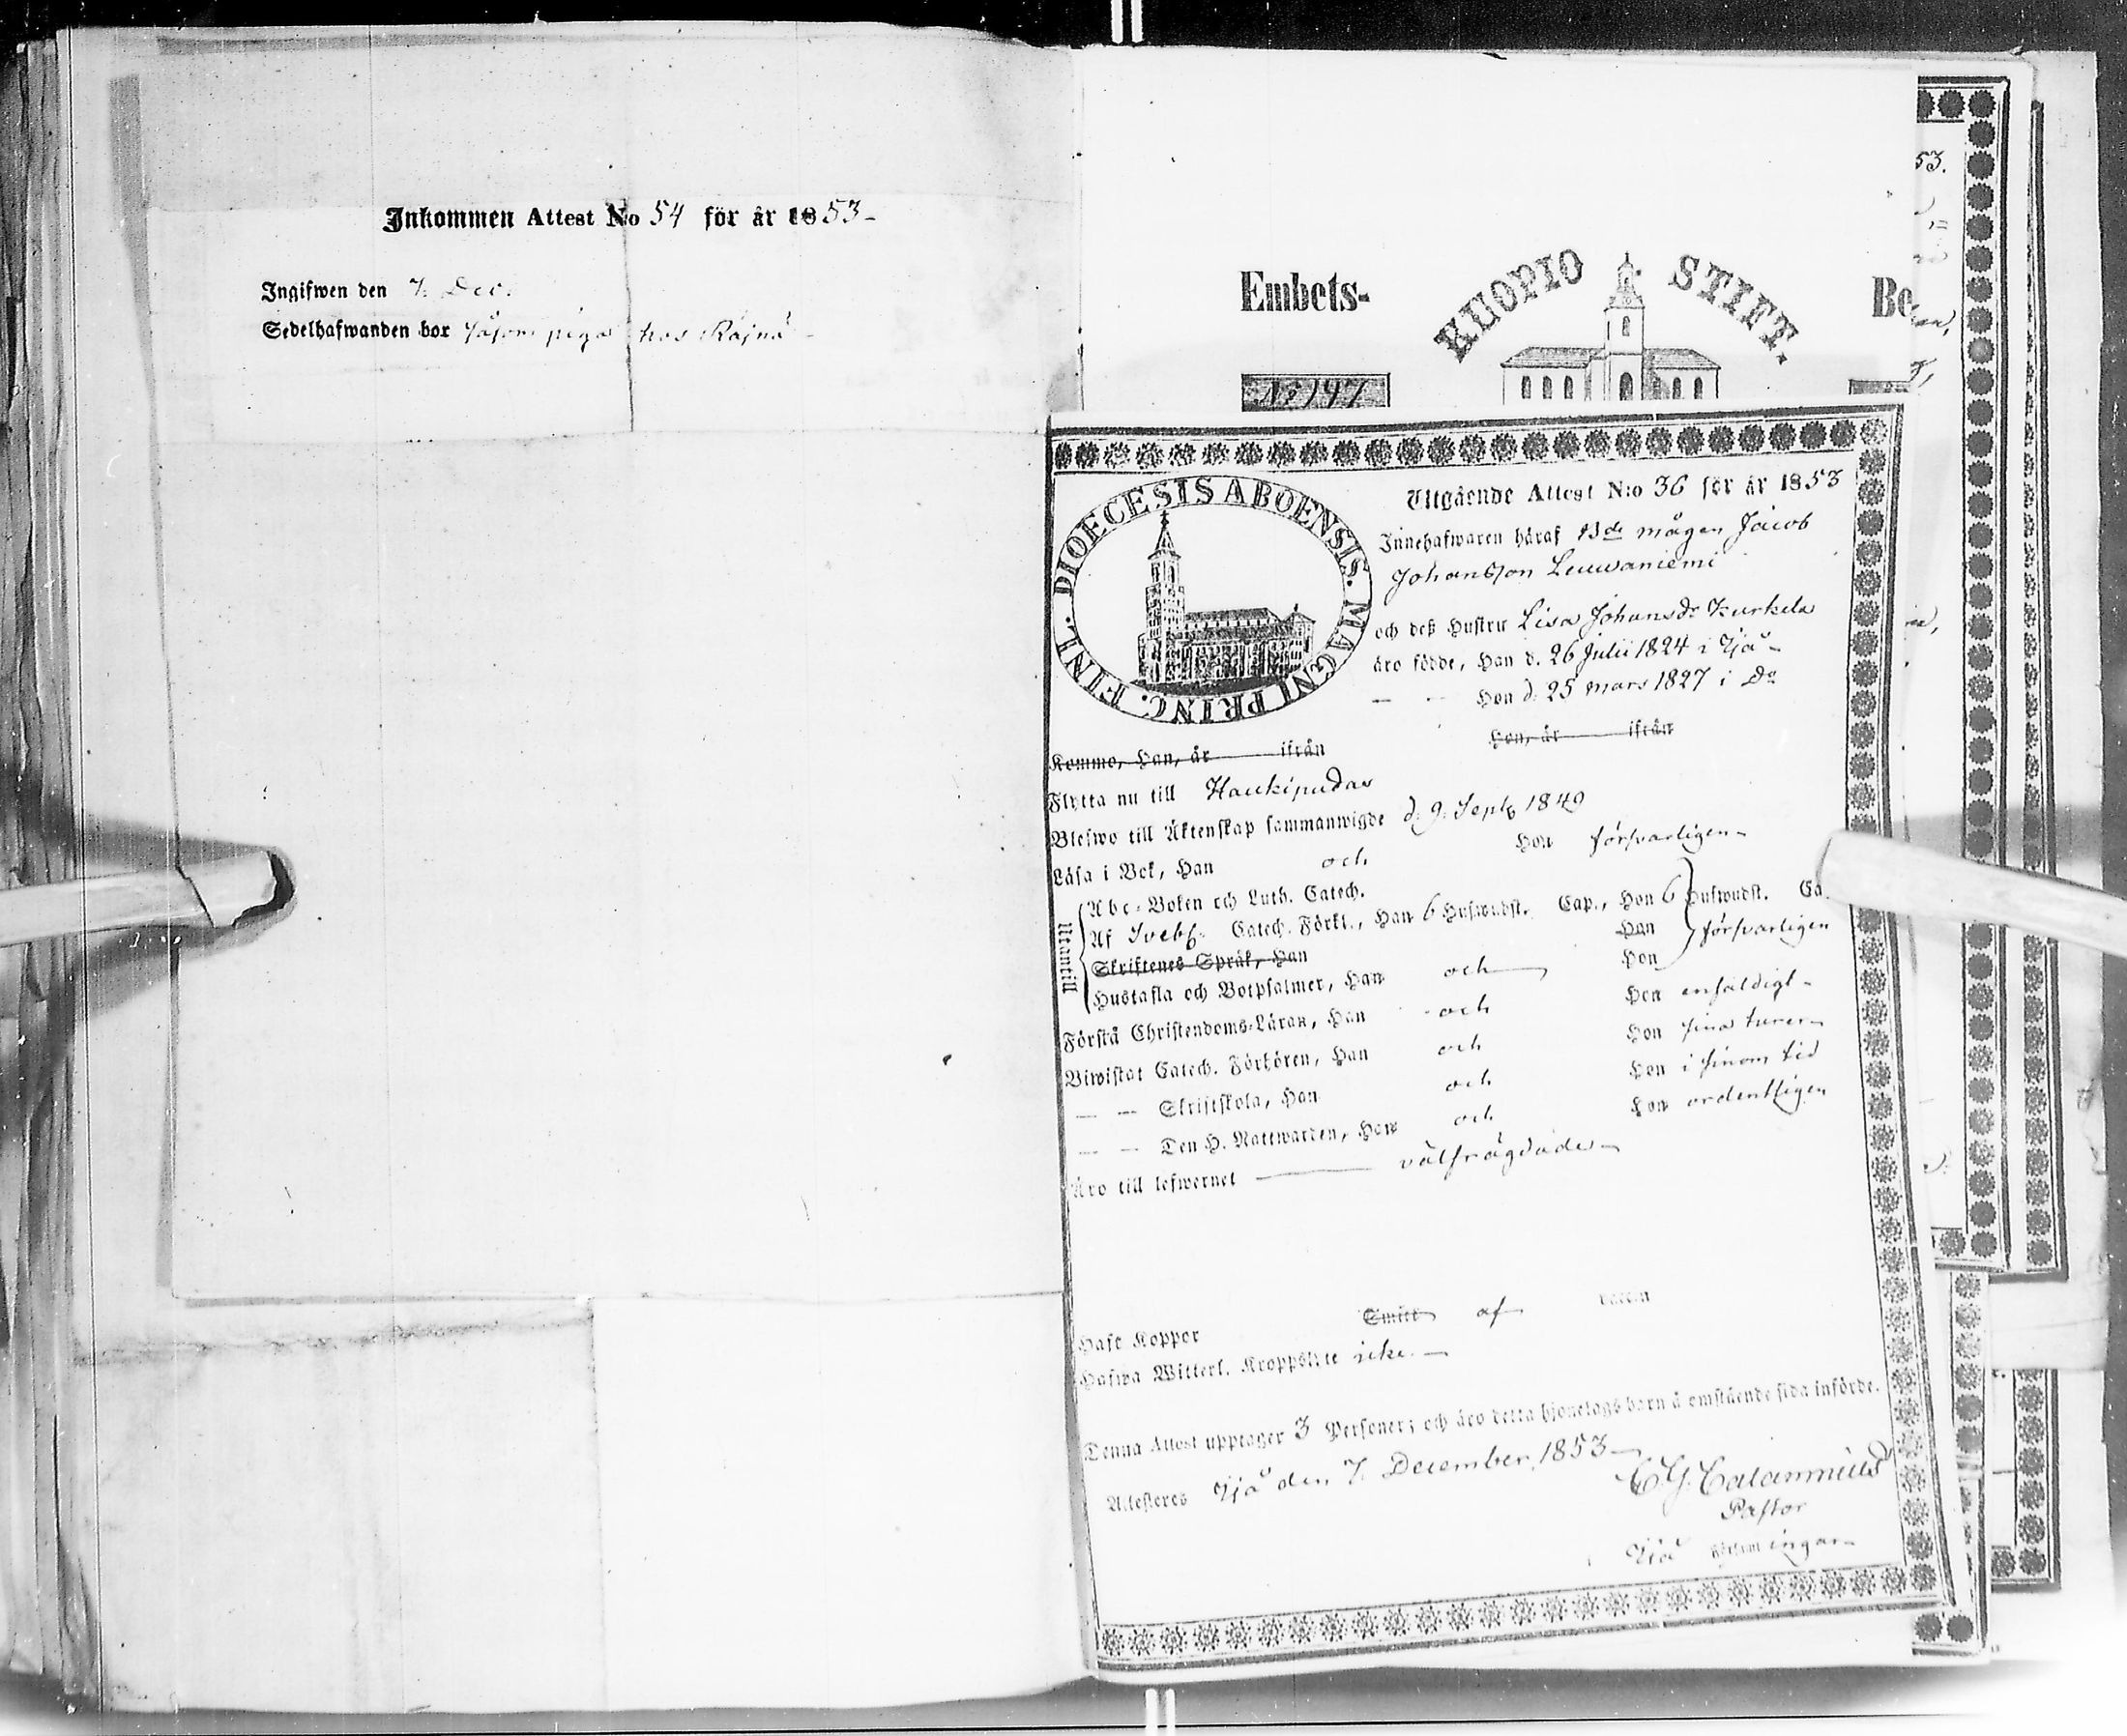 Inkommen Attest No 54 för år 1853-
Ingifwen den 7. Dec.
Sedelhafwanden bor såsom piga hos Rajna -
Embets-
KUOPIO STIFT.
Be
No 197
53.
DIOECESIS ABOENSIS. MAGNI PRINC. FINL.
Utgående Attest N:o 36 för år 1853
Innehafwaren häraf Bde mågen Jacob
Johansson Leuwaniemi
och deß Hustru Lisa Johansdr Kurkela
äro födde, Han d. 26 Julii 1824 i Ijå -
— - Hon d. 25 mars 1827 i Do
Kommo, Han, år ifrån Hon, år ifrån
Flytta nu till Haukipudas
Blefwo till Äktenskap sammanwigde d. 9. Septb 1849
Läsa i Bok, Han och Hon försvarligen -
Utantill
Abc-Boken och Luth. Catech.
Af Svebs. Catech. Förkl., Han 6 Hufwudst. Cap., Hon 6 Hufwudst. Ca
Skriftenes Språk, Han Hon försvarligen
Hustafla och Botpsalmer, Han och Hon
Förstå Christendoms-Läran, Han och Hon enfaldigt -
Biwistat Catech. Förhören, Han och Hon sina turer -
— — Skriftskola, Han och Hon i sinom tid
— — Den H. Nattwarden, Han och Hon ordentligen
Äro till lefwernet — välfrägdade -
Haft Koppor Smitt af
Hafwa Witterl. Kroppslyte icke. —
Denna Attest upptager 3 Personer; och äro detta hjonelags barn å omstående sida införde.
Attesteres Ijå den 7. December 1853 —
C. G. Calamnius
Pastor
Ijå församlingar -